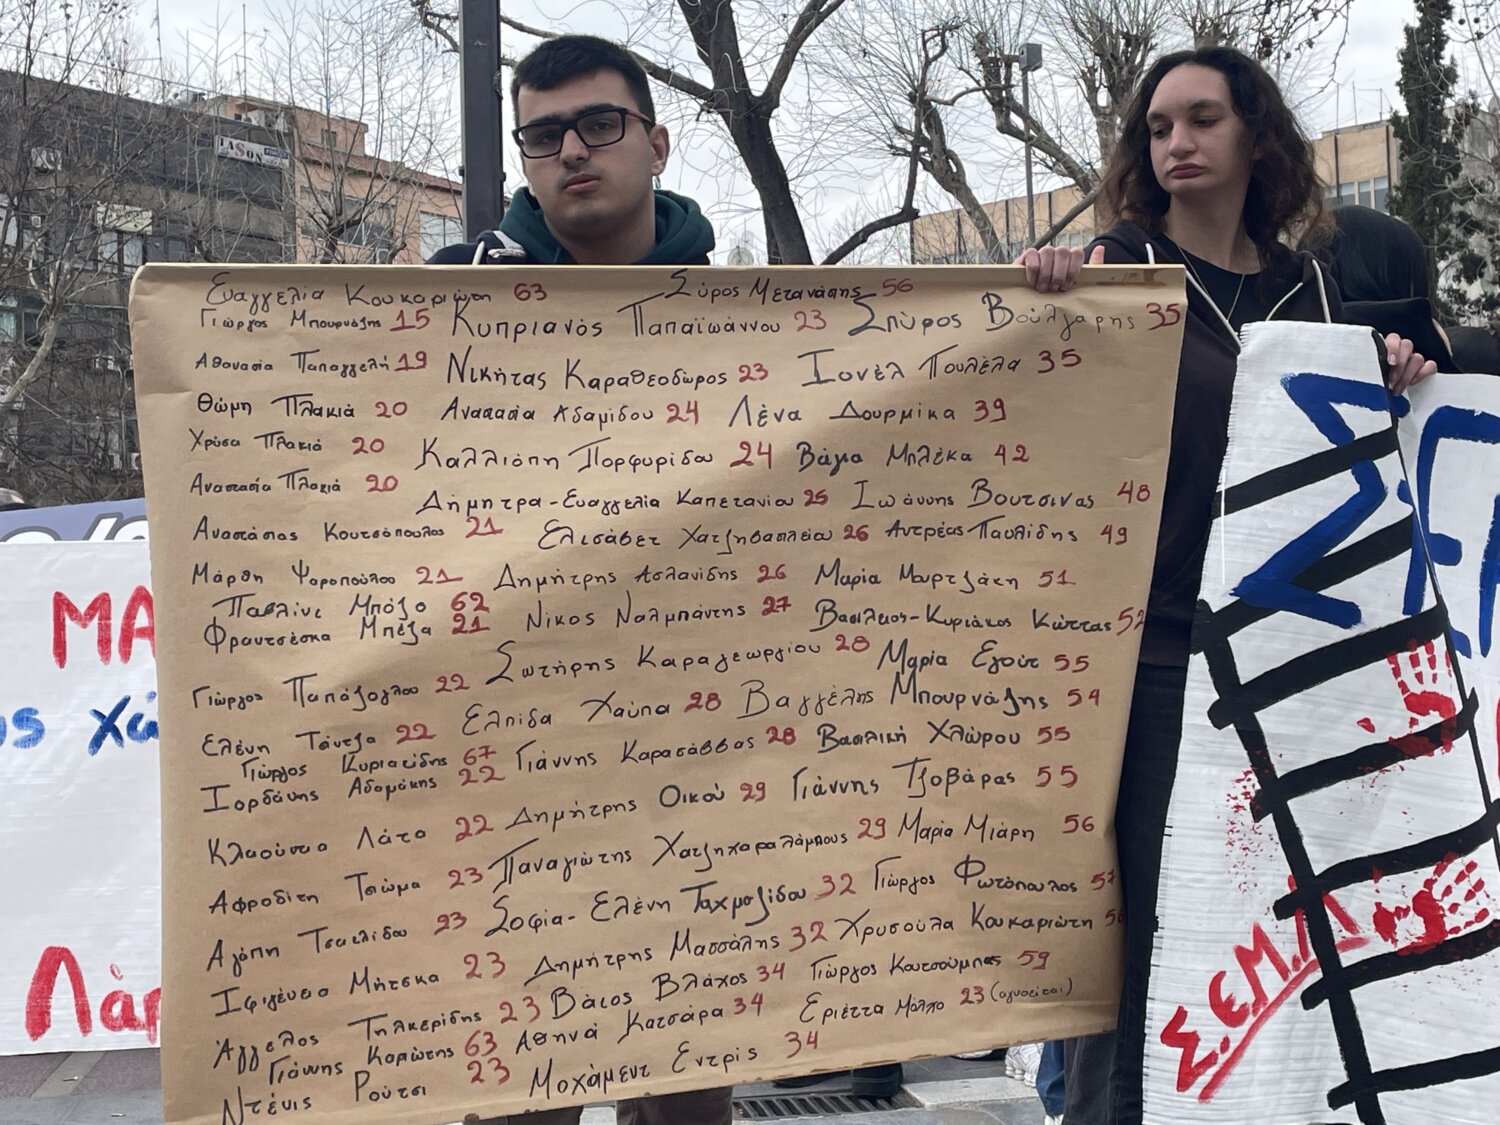 IASON
Ευαγγελία Κουκαριώτη 63
Σπύρος Μετανάστης 56
Γιώργος Μπουρνάζης 15
Κυπριανός Παπαϊωάννου 23
Σπύρος Βούλγαρης 35
Αθανασία Παπαγγελή 19
Νικήτας Καραθεοδώρος 23
Ιονέλ Πουλέλα 35
Θώμη Πλακιά 20
Αναστασία Αδαμίδου 24
Λένα Δουρμίκα 39
Χρύσα Πλακιά 20
Καλλιόπη Πορφυρίδου 24
Βάγια Μπλέκα 42
Αναστασία Πλακιά 20
Δήμητρα-Ευαγγελία Καπετανίου 25
Ιωάννης Βουτσινας 48
Αναστάσιος Κουτσόπουλος 21
Ελισάβετ Χατζηβασιλείου 26
Αντρέας Παυλίδης 49
Μάρθη Ψαροπούλου 21
Δημήτρης Ασλανίδης 26
Μαρία Μουρτζάκη 51
Παυλίνε Μπόζο 62
Φραντσέσκα Μπέζα 21
Νίκος Ναλμπάντης 27
Βασίλειος-Κυριάκος Κώττας 52
Γιώργος Παπάζογλου 22
Σωτήρης Καραγεωργίου 28
Μαρία Εγούτ 55
Ελένη Τσίντζα 22
Ελπίδα Χαύπα 28
Βαγγέλης Μπουρνάζης 54
Γιώργος Κυριακίδης 67
Ιορδάνης Αδαμάκης 22
Γιάννης Καρασάββας 28
Βασιλική Χλώρου 55
Κλαούντια Λάτα 22
Δημήτρης Οικού 29
Γιάννης Τζοβάρας 55
Αφροδίτη Τσιώμα 23
Παναγιώτης Χατζηχαραλάμπους 29
Μαρία Μιάρη 56
Αγάπη Τσακλίδου 23
Σοφία-Ελένη Ταχμαζίδου 32
Γιώργος Φωτόπουλος 57
Ιφιγένεια Μήτσκα 23
Δημήτρης Μασσάλης 32
Χρυσούλα Κουκαριώτη
Άγγελος Τηλκερίδης 23
Βάιος Βλάχος 34
Γιώργος Κουτσούμπας 59
Γιάννης Καριώτης 63
Αθηνά Κατσάρα 34
Εριέττα Μόλχο 23 (αγνοείται)
Ντένις Ρούτσι 23
Μοχάμεντ Εντρίς 34
ΜΑ
ς χώ
Λάρ
Σ.Ε.Μ.Π